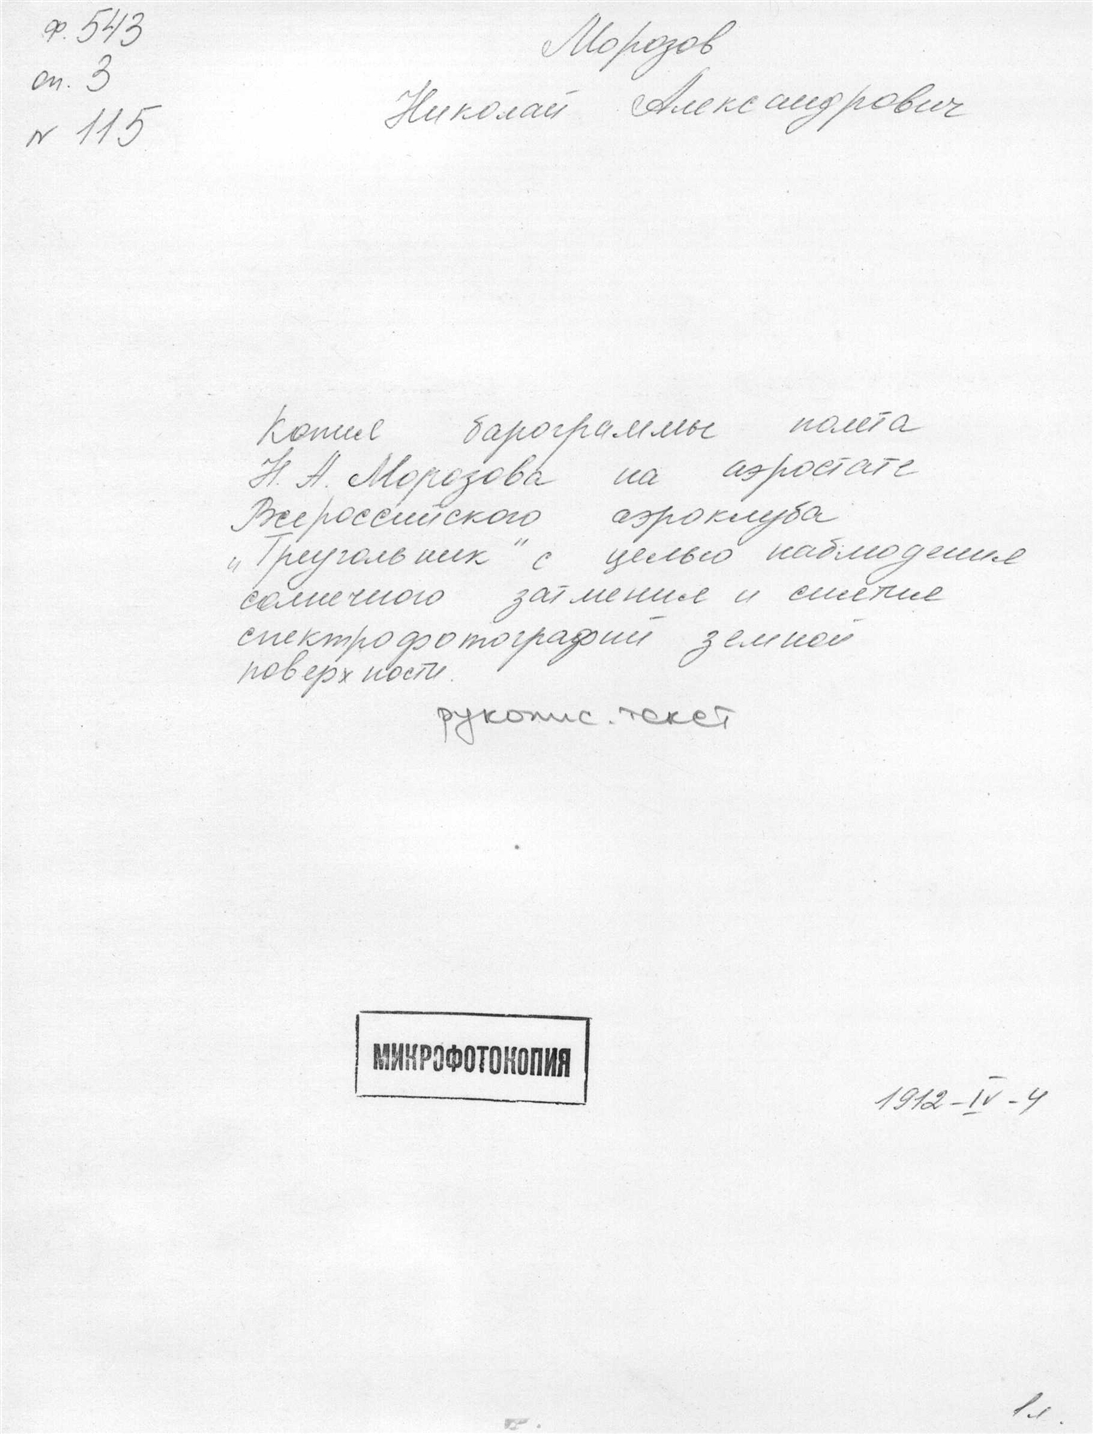 ф. 543
оп. 3
№ 115
Морозов
Николай Александрович
Копия барограммы полета
Н. А. Морозова на аэростате
Всероссийского аэроклуба
„Треугольник" с целью наблюдения
солнечного затмения и снятия
спектрофотографий земной
поверхности.
рукопис. текст
МИКРОФОТОКОПИЯ
1912-IV-4
1 л.